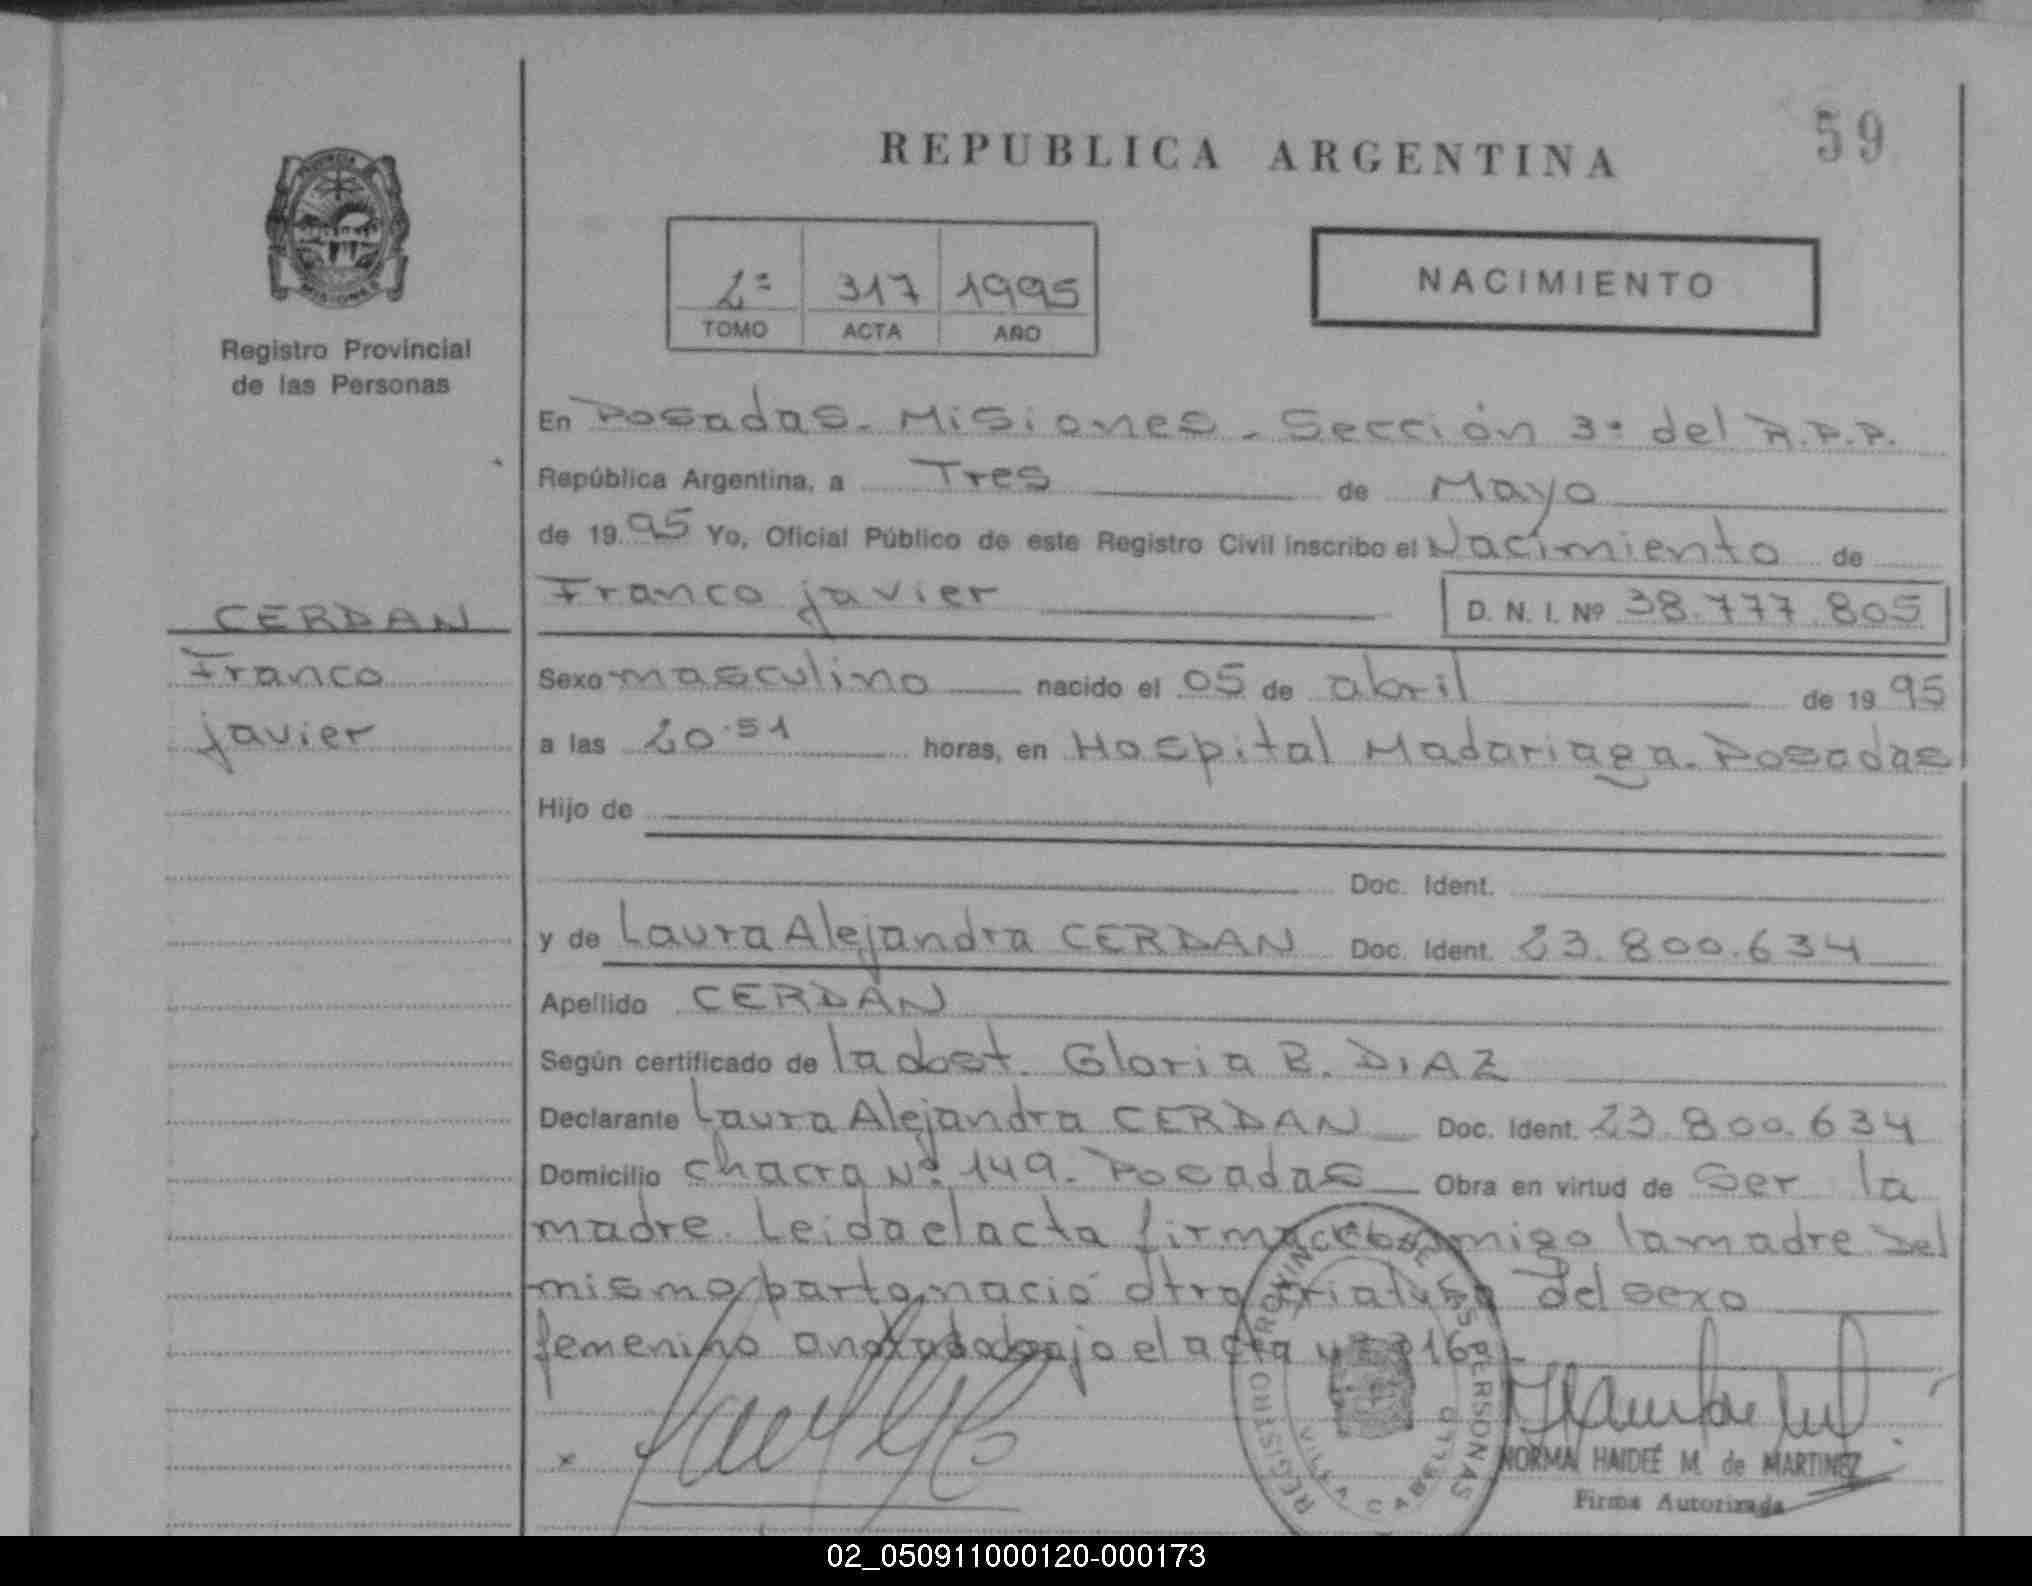 REPUBLICA ARGENTINA
59
2º 317 1995
TOMO ACTA AÑO
NACIMIENTO
Registro Provincial
de las Personas
En Posadas - Misiones - Sección 3ª del R.P.P.
República Argentina, a Tres de Mayo
de 1995 Yo, Oficial Público de este Registro Civil inscribo el Nacimiento de
Franco javier D. N. I. Nº 38.777.805
CERDAN
Franco
javier
Sexo masculino nacido el 05 de abril de 1995
a las 20.51 horas, en Hospital Madariaga. Posadas
Hijo de
Doc. Ident.
y de Laura Alejandra CERDAN Doc. Ident. 23.800.634
Apellido CERDAN
Según certificado de la obst. Gloria B. DIAZ
Declarante Laura Alejandra CERDAN Doc. Ident. 23.800.634
Domicilio chacra Nº 149. Posadas Obra en virtud de ser la
madre. Leida el acta firma conmigo la madre. Del
mismo parto nació otra criatura del sexo
femenino anotada bajo el acta nº 316
REGISTRO PROVINCIAL DE LAS PERSONAS
NORMA HAIDEÉ M. de MARTINEZ
Firma Autorizada
02_050911000120-000173